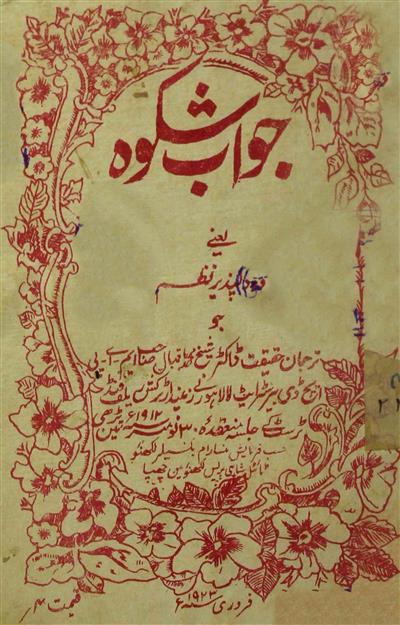 جواب شکوہ
یعنے
دلپذیر نظم
جو
ترجمان حقیقت ڈاکٹر شیخ محمد اقبال صاحب ایم۔ اے۔ پی
ایچ ڈی بیرسٹرایٹ لا لاہور نے
ٹرکی جلسہ منعقدہ ۳۰ نومبر ۱۹۱۲ء میں پڑھی
حسب فرمایش منسارام بکسیلر لکھنؤ
پریس لکھنؤ میں چھپا
فروری سنہ ۱۹۲۳ء
قیمت ۴